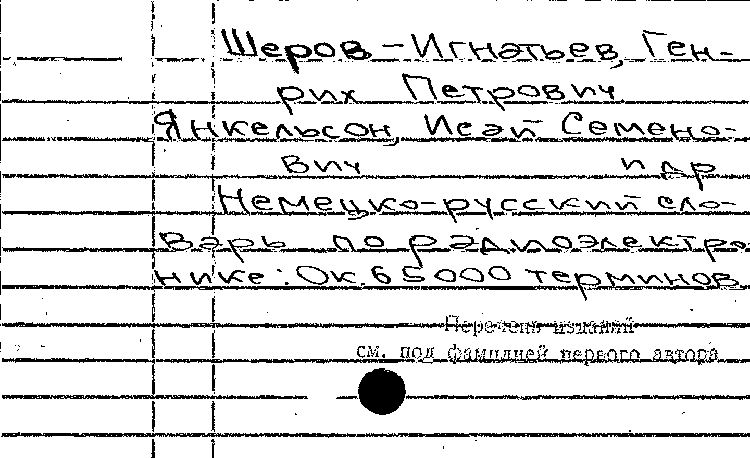 Шеров-Игнатьев, Ген-
рих Петрович
Янкельсон, Исай Семено-
вич и др
Немецко-русский сло-
варь по радиоэлектро-
нике: Ок. 65000 терминов
Перечень изданий
см. под фамилией первого автора